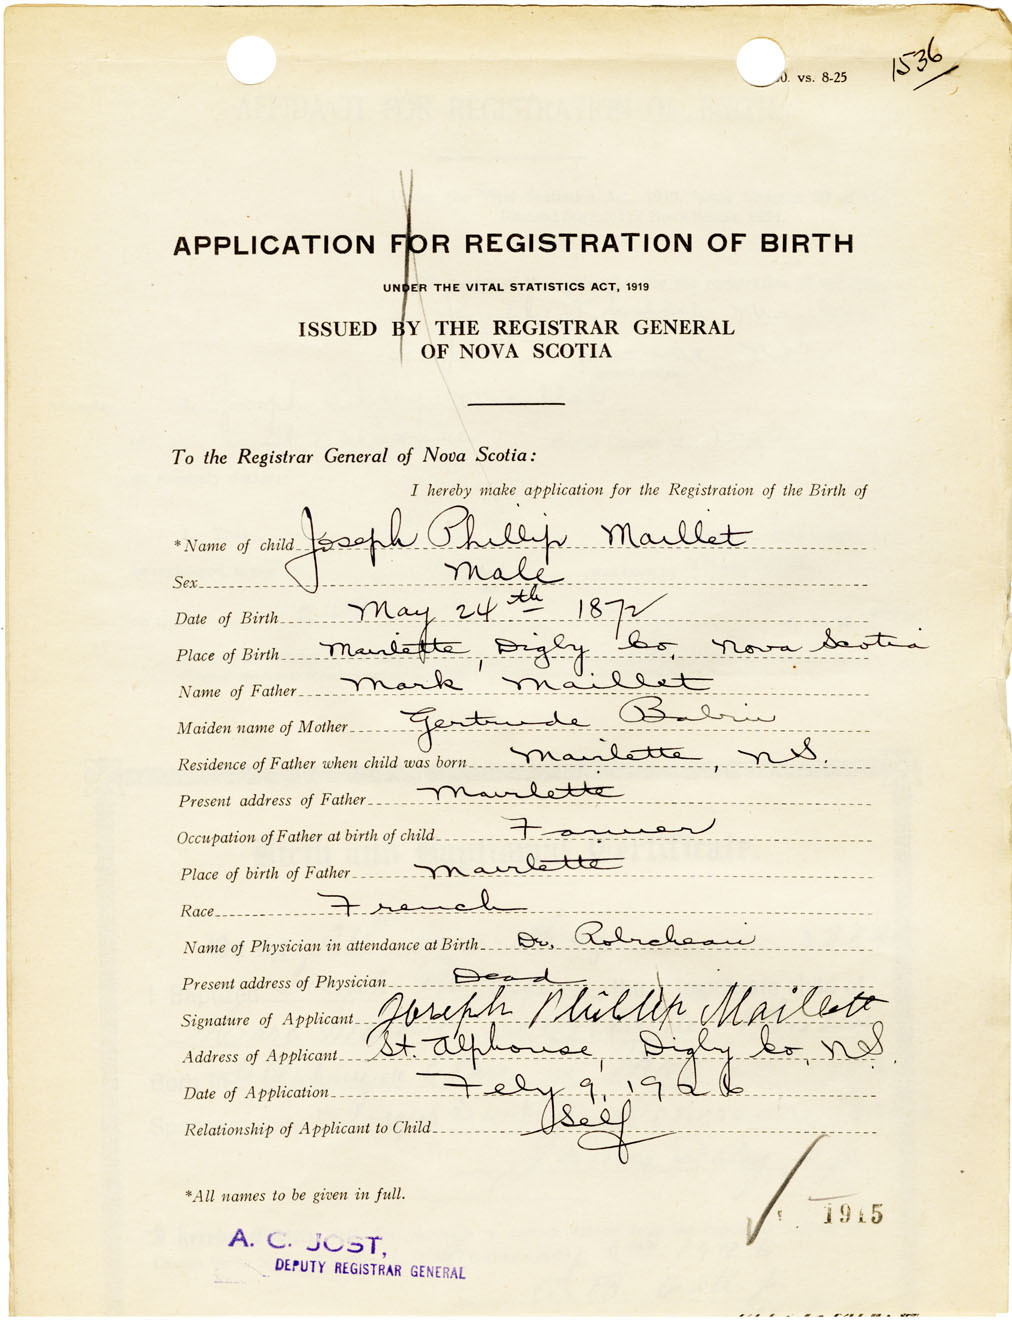 1536
0. vs. 8-25
APPLICATION FOR REGISTRATION OF BIRTH
UNDER THE VITAL STATISTICS ACT, 1919
ISSUED BY THE REGISTRAR GENERAL
OF NOVA SCOTIA
To the Registrar General of Nova Scotia:
I hereby make application for the Registration of the Birth of
*Name of child Joseph Phillip Maillet
Sex Male
Date of Birth May 24th 1872
Place of Birth Mavilette, Digby Co, Nova Scotia
Name of Father Mark Maillet
Maiden name of Mother Gertrude
Residence of Father when child was born Mavilette, N.S.
Present address of Father Mavilette
Occupation of Father at birth of child Farmer
Place of birth of Father Mavilette
Race French
Name of Physician in attendance at Birth Dr. Robicheau
Present address of Physician Dead
Signature of Applicant Joseph Phillip Maillett
Address of Applicant St. Alphonse, Digby Co, N.S.
Date of Application Feby 9, 1926
Relationship of Applicant to Child Self
*All names to be given in full.
1915
A. C. JOST,
DEPUTY REGISTRAR GENERAL